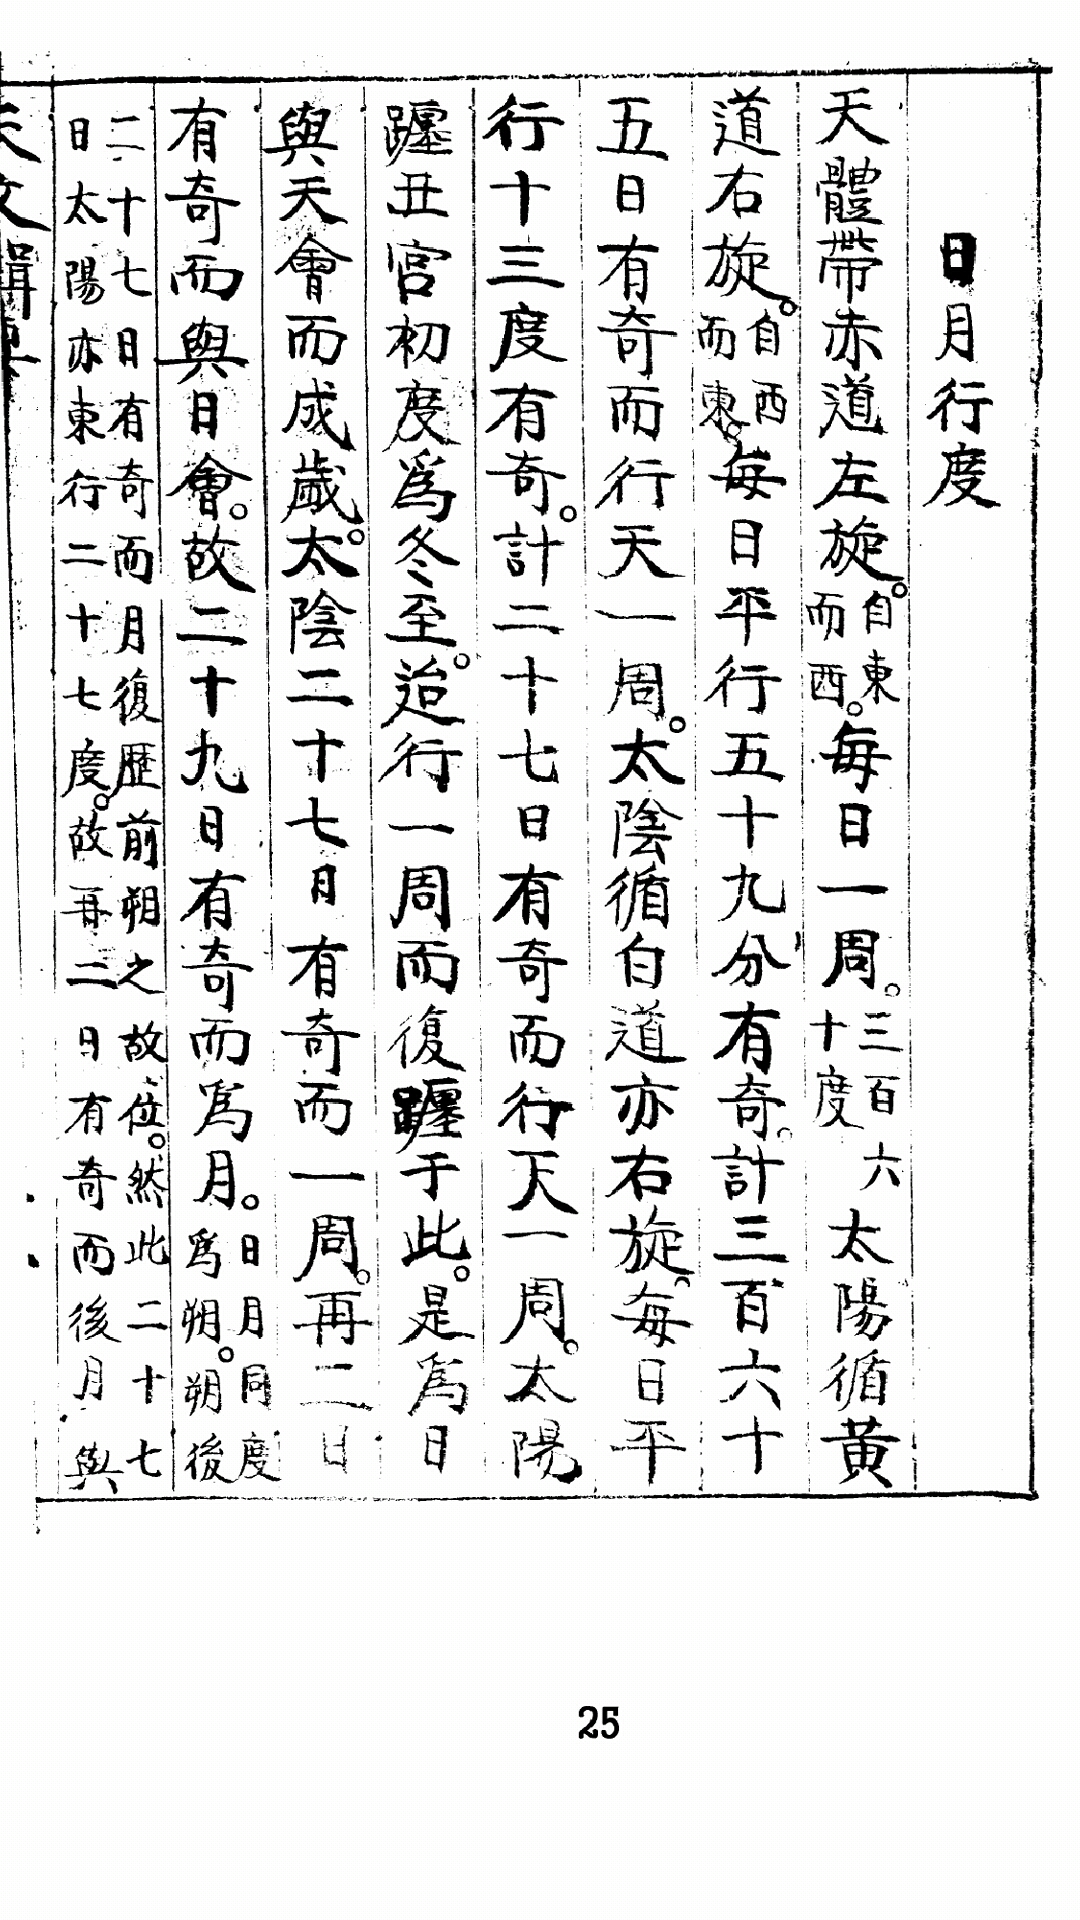 日月行度
天體帶赤道左旋。自東而西。每日一周。三百六十度太陽循黃
道右旋。自西而東。每日平行五十九分有奇。計三百六十
五日有奇而行天一周。太陰循白道亦右旋。每日平
行十三度有奇。計二十七日有奇而行天一周。太陽
躔丑宮初度爲冬至。迨行一周而復躔于此。是爲日
與天會而成歲。太陰二十七日有奇而一周。再二日
有奇而與日會。故二十九日有奇而爲月。日月同度爲朔。朔後
二十七日有奇而月復歷前朔之故位。然此二十七
日太陽亦東行二十七度。故再二日有奇而後月與
25